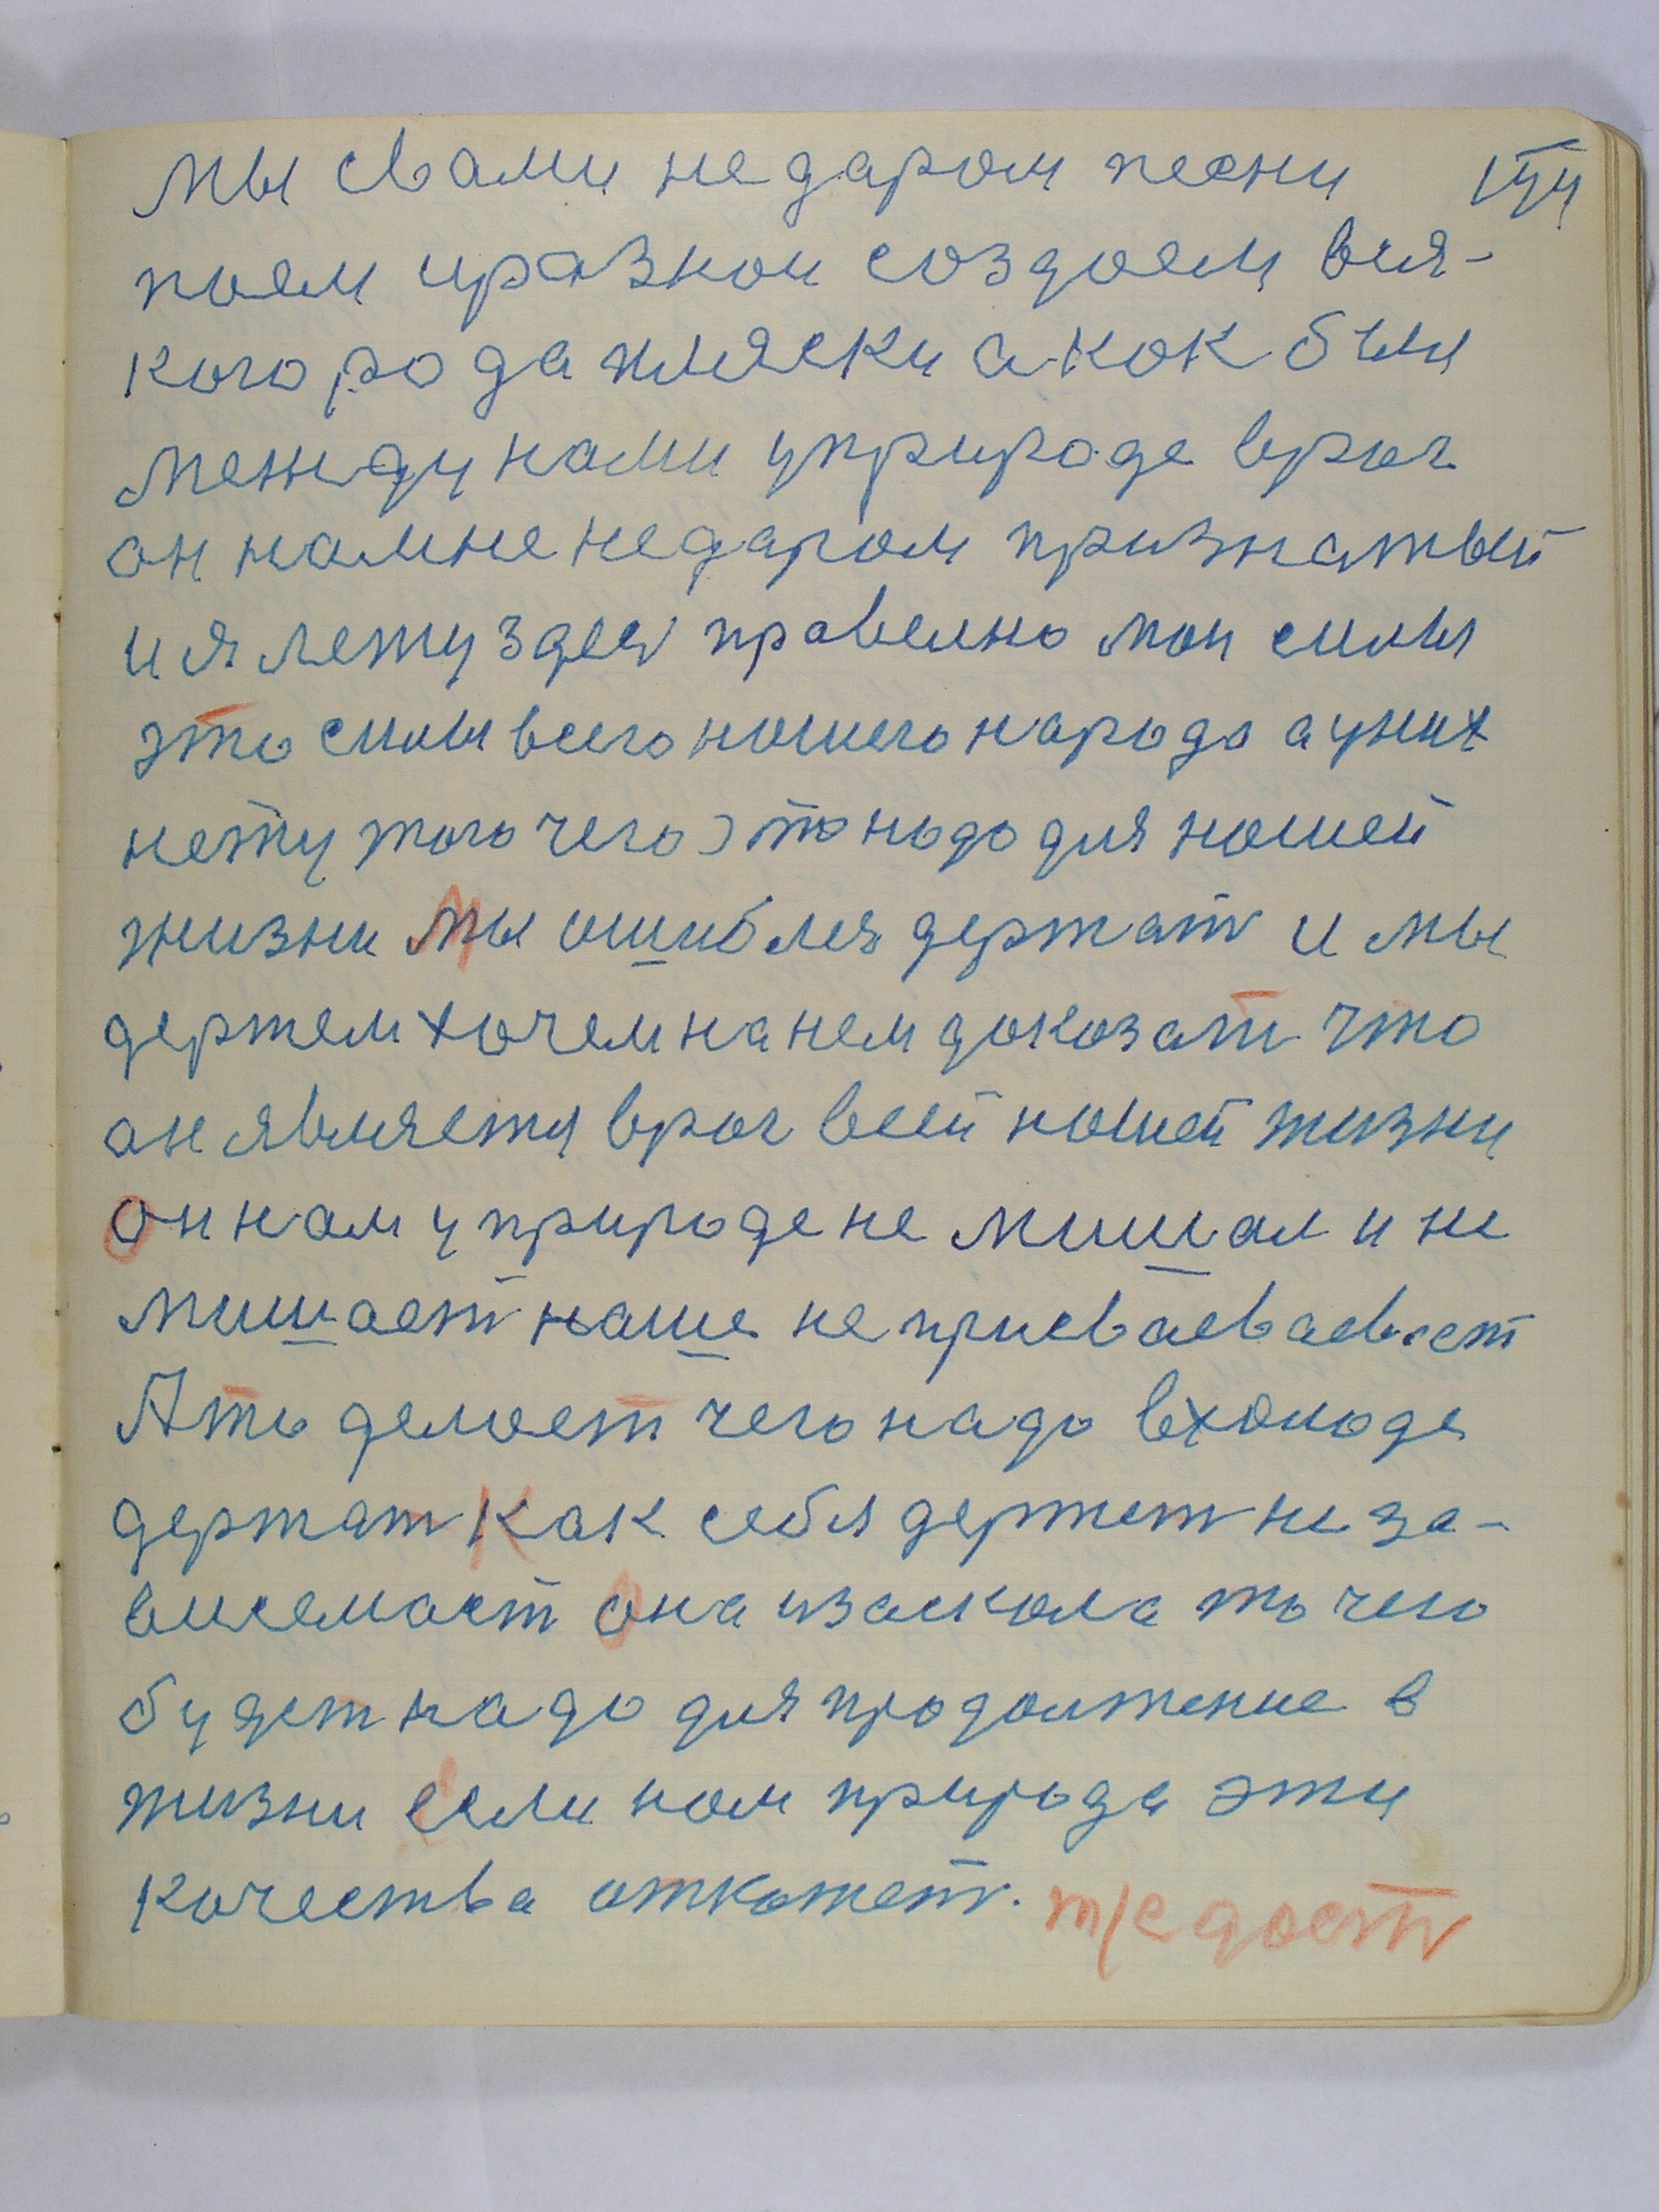 мы свами недаром песни
поем иразнои создаем вся-
кого рода пляски а как был
между нами уприроде враг
он намне недаром признатый
и я лежу здесь правелно мои силы
это силы всего нашего народа а уних
нету того чего это надо для нашей
жизни Мы ошиблся держат и мы
держем хочем на нем доказат что
он является враг всей нашей жизни
Он нам у природе не мишал и не
мишает наше не присваевает
А то делает чего надо вхолоде
держат Как себя держет неза-
висемаст Она изаскала то чего
будет надо для продолжение в
жизни если нам природа эти
качества откажет. т/е даст